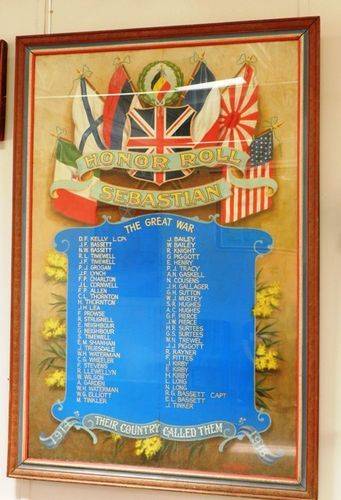 HONOR ROLL
SEBASTIAN
THE GREAT WAR
D.F. KELLY L.CPL
J.F. BASSETT
N.W. BASSETT
R.L. TIMEWELL
J.F. TIMEWELL
P.J. GROGAN
J.F. LYNCH
F.P. CHARLTON
J.L. CORNWELL
F.F. ALLEN
C.L. THORNTON
H. THORNTON
J.H. LEA
F. PROWSE
R. STRUGNELL
E. NEIGHBOUR
G. NEIGHBOUR
E. TIMEWELL
E.M. SHANAHAN
J. TRUESDALE
W.H. WATERMAN
C.G. WHEELER
F. STEVENS
R. LLEWELLYN
W. WILSON
A. GARDEN
W.H. WATERMAN
W.G. ELLIOTT
M. TINKLER
J. BAILEY
W. BAILEY
R. KNIGHT
G. PIGGOTT
E. HENRY
P.J. TRACY
A.N. GASKELL
N. COUSENS
J.H. GALLAGER
G.H. SUTTON
W.J. MUSTEY
S.R. HUGHES
A.C. HUGHES
G.F. PIERCE
J.W. PIERCE
H.R. SURTEES
G.S. SURTEES
W.N. TREWEL
J.J. PIGGOTT
R. RAYNER
F. FITTES
J. KIRBY
E. KIRBY
H. KIRBY
L. LONG
N. LONG
R.G. BASSETT CAPT
E.L. BASSETT
J. TINKER
1914 THEIR COUNTRY CALLED THEM 1918